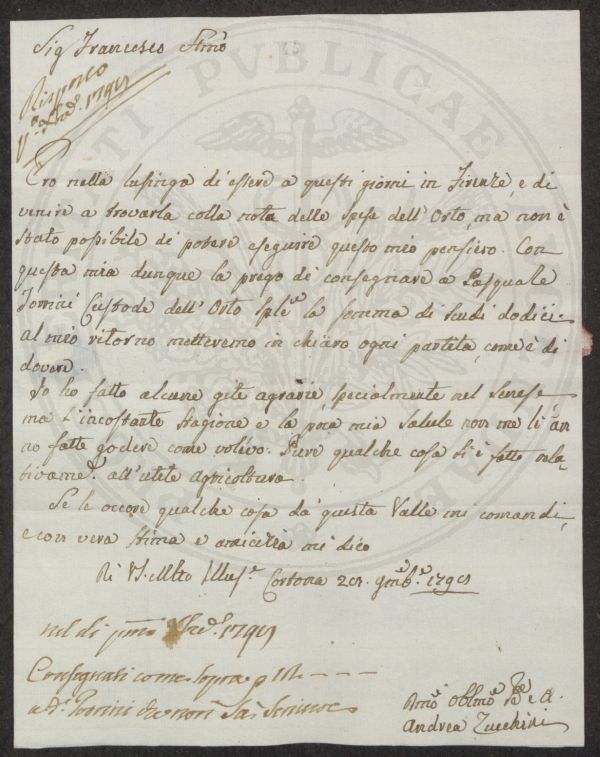 Sig Francesco Stimo
Risposto
Ero nella lusinga di essere a questi giorni in Firenze, e di
venire a trovarla colla nota delle spese dell'Orto, ma non è
stato possibile di potere eseguire questo mio pensiero. Con
questa mia dunque la prego di consegnare a Pasquale
Tonini Custode dell'Orto la somma di Scudi dodici.
al mio ritorno metteremo in chiaro ogni partita, come è di
dovere.
Io ho fatto alcune gite agrarie specialmente nel Senese
ma l'incostante Stagione e la poca mia Salute non me li àn
no fatte godere come volevo. Pure qualche cosa si è fatto rela-
tivame. all'utile agricoltura.
Se le occore qualche cosa da questa Valle mi comandi,
e con vera stima e amicizia mi dico
Di Cortona
nel di pmo
Consegnati come sopra
a do Tonini
Andrea Zucchini